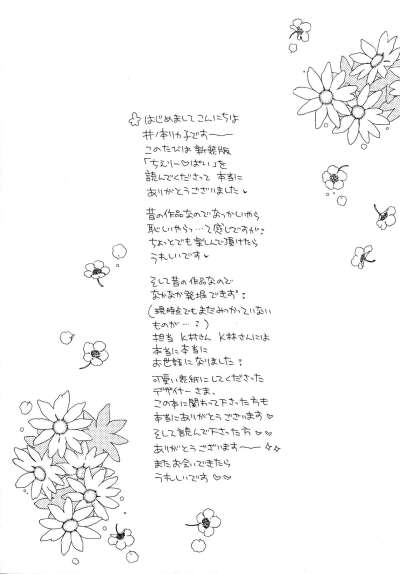 はじめましてこんにちは
井ノ本リカ子です——
このたびは新装版
「ちぇりー♡ぱい」を
読んでくださって本当に
ありがとうございました♥
昔の作品なのでなつかしいやら
恥しいやらっ…て感じですが：
ちょっとでも楽しんで頂けたら
うれしいです♥
そして昔の作品なので
なかなか発掘できず：
(現時点でもまだみつかっていない
ものが…：)
担当 K村さん K林さんには
本当に本当に
お世話になりました：
可愛い表紙にしてくださった
デザイナーさま、
この本に関わって下さった方も
本当にありがとうございます♡
そして読んで下さった方♡♡
ありがとうございます——☆☆
またお会いできたら
うれしいです♡♡